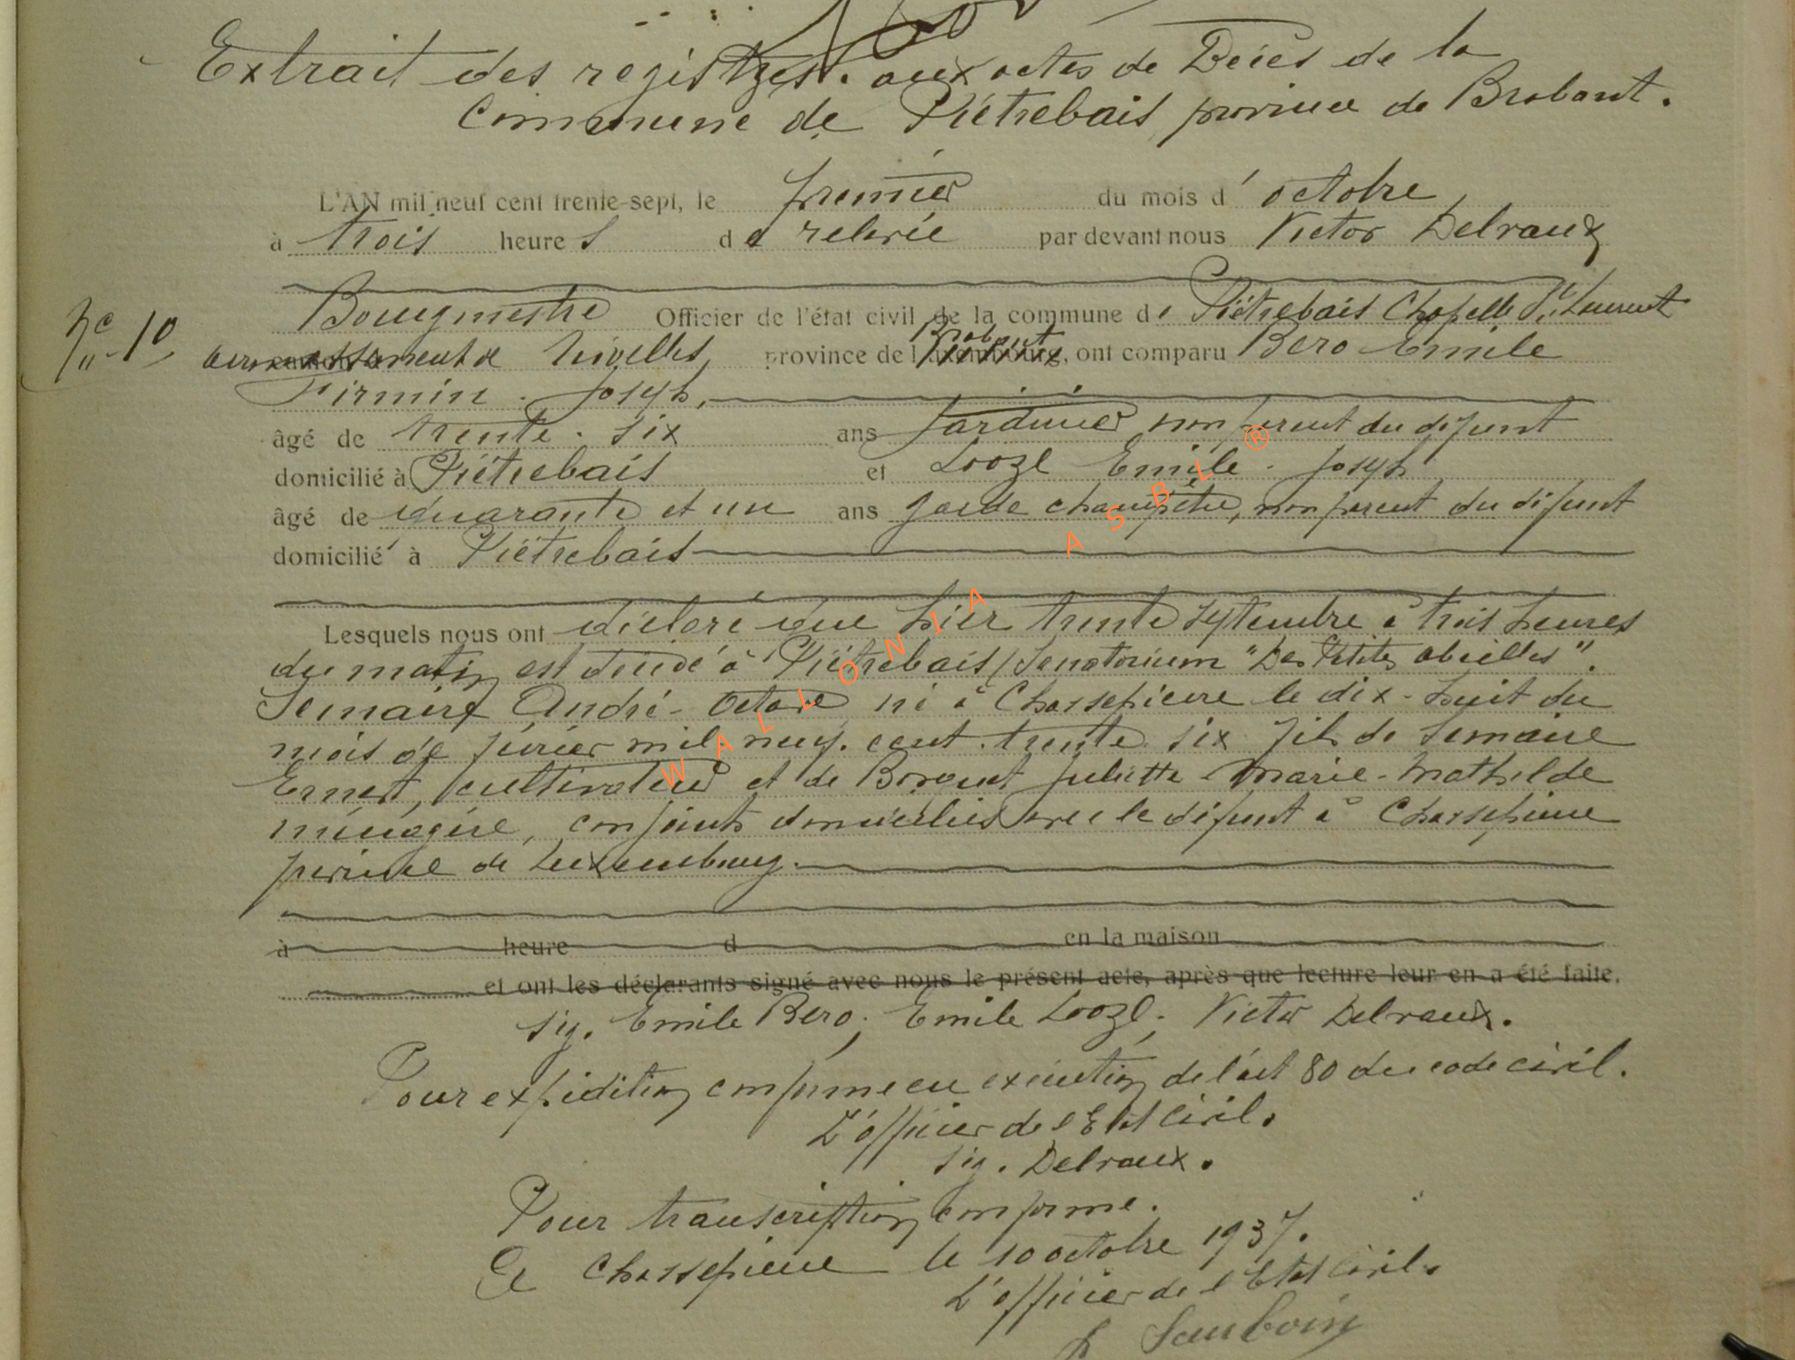 Extrait des registres. aux actes de Décès de la
Commune de Piétrebais province de Brabant.
L'AN mil neuf cent trente-sept, le premier du mois d' octobre
à trois heures de relevée par devant nous Victor Delvaux
Bourgmestre Officier de l'état civil de la commune de Piétrebais Chapelle St Laurent
N° 10
arrondissement de Nivelles, province de Brabant, ont comparu Bero Emile
Firmin - Joseph,
âgé de trente - six ans Jardinier non parent du défunt
domicilié à Piétrebais et Looze Emile - Joseph
âgé de quarante et un ans garde champêtre, non parent du défunt
domicilié à Piétrebais
Lesquels nous ont déclaré que hier trente septembre à trois heures
du matin est décédé à Piétrebais (Sanatorium "Des Petites abeilles".
Semaire André - Octave né à Chassepierre le dix - huit du
mois de février mil neuf. cent. trente. six fils de Semaire
Ernest, cultivateur et de Borquet Juliette Marie - Mathilde
ménagère, conjoints domiciliés avec le défunt à Chassepierre
province de Luxembourg.
à heure d en la maison
et ont les déclarants signé avec nous le présent acte, après que lecture leur en a été faite.
Sig. Emile Bero; Emile Looze; Victor Delvaux.
Pour expédition conforme en exécution de l'art 80 du code civil.
L'officier de l'Etat Civil.
Sig. Delvaux.
Pour transcription conforme.
Chassepierre le 10 octobre 1937.
L'officier de l'Etat Civil.
Sauboin
WALLONIA ASBL ®